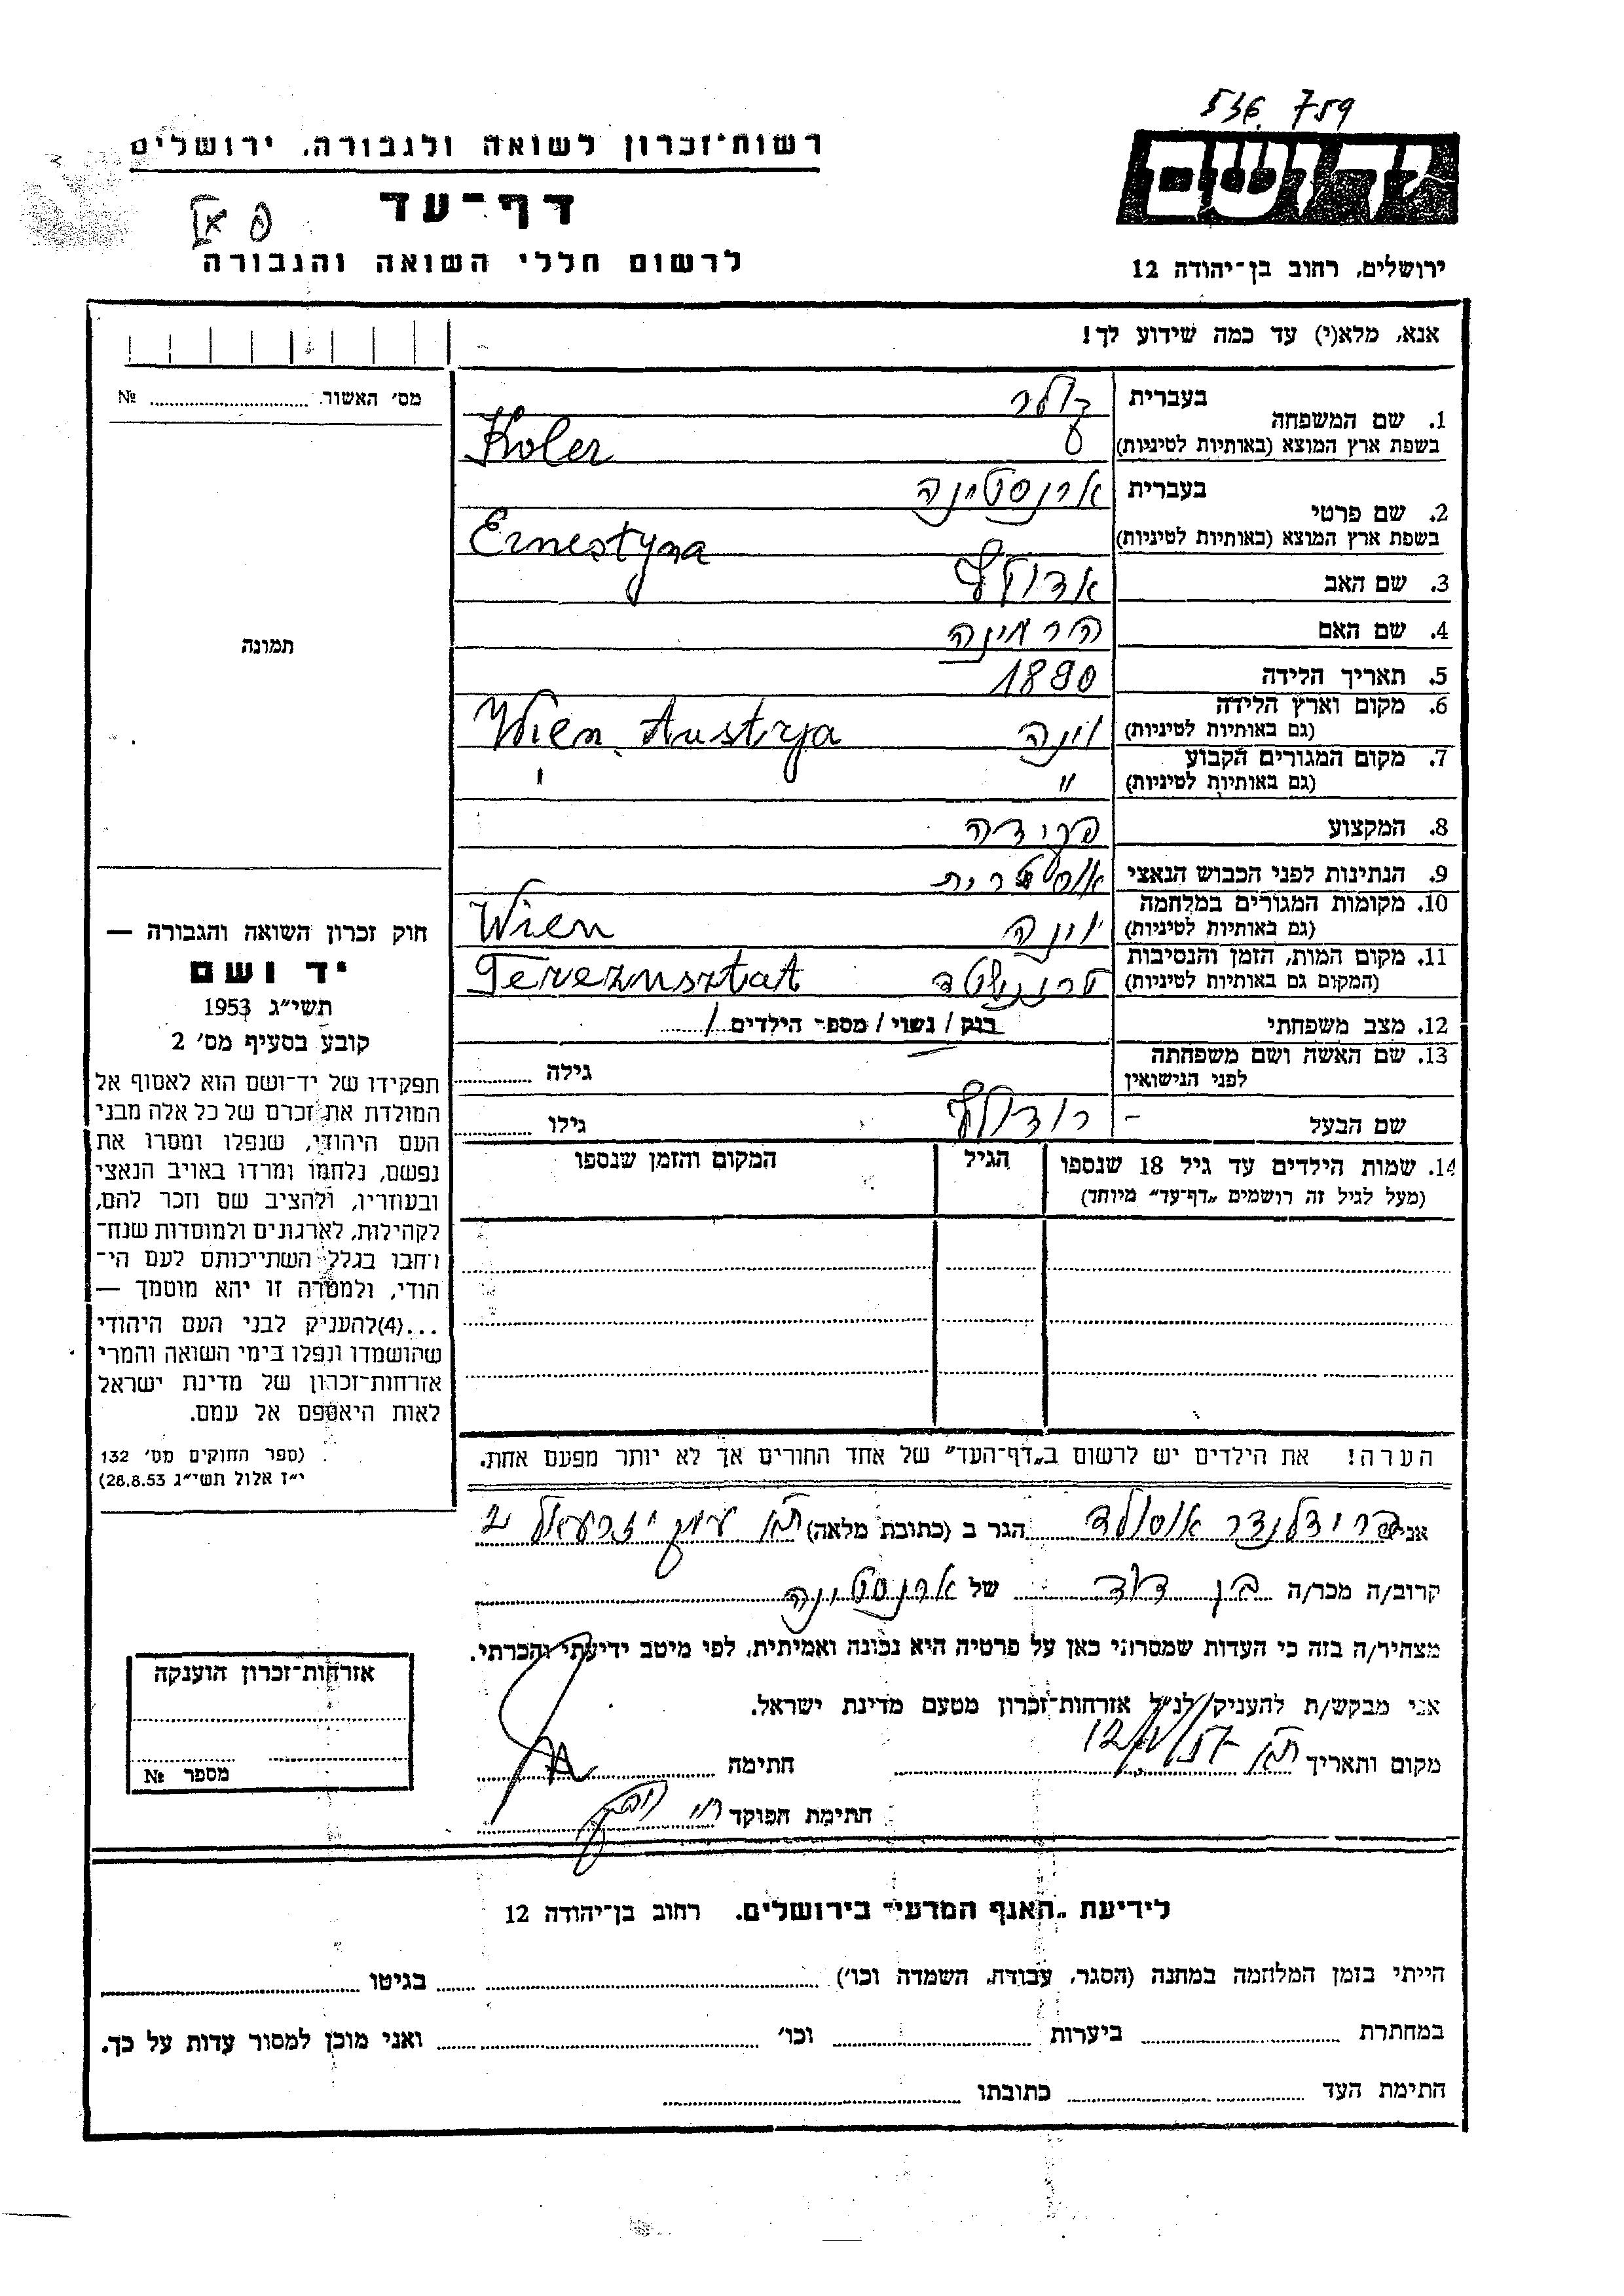 536 759
רשות־זכרון לשואה ולגבורה, ירושלים
יד ושם
דף־עד
לרשום חללי השואה והגבורה
ירושלים, רחוב בן־יהודה 12
אנא, מלא(י) עד כמה שידוע לך!
מס׳ האשור № 
1. שם המשפחה
בעברית קולר
בשפת ארץ המוצא (באותיות לטיניות) Koler
2. שם פרטי
בעברית ארנסטינה
בשפת ארץ המוצא (באותיות לטיניות) Ernestyna
3. שם האב אדולף
4. שם האם הרמינה
5. תאריך הלידה 1890
6. מקום וארץ הלידה
(גם באותיות לטיניות) וינה Wien Austrja
7. מקום המגורים הקבוע
(גם באותיות לטיניות) " "
8. המקצוע פקידה
9. הנתינות לפני הכבוש הנאצי אוסטרית
10. מקומות המגורים במלחמה
(גם באותיות לטיניות) וינה Wien
11. מקום המות, הזמן והנסיבות
(המקום גם באותיות לטיניות) טרזנשטט Tereznsztat
12. מצב משפחתי רווק / נשוי / מספר הילדים 1
13. שם האשה ושם משפחתה
לפני הנישואין גילה
שם הבעל - רודולף גילו
14. שמות הילדים עד גיל 18 שנספו
(מעל לגיל זה רושמים „דף־עד״ מיוחד)
הגיל
המקום והזמן שנספו
תמונה
חוק זכרון השואה והגבורה —
יד ושם
תשי״ג 1953
קובע בסעיף מס׳ 2
תפקידו של יד־ושם הוא לאסוף אל
המולדת את זכרם של כל אלה מבני
העם היהודי, שנפלו ומסרו את
נפשם, נלחמו ומרדו באויב הנאצי
ובעוזריו, ולהציב שם וזכר להם,
לקהילות, לארגונים ולמוסדות שנח־
רחבו בגלל השתייכותם לעם הי־
הודי, ולמטרה זו יהא מוסמך —
...(4)להעניק לבני העם היהודי
שהושמדו ונפלו בימי השואה והמרי
אזרחות־זכרון של מדינת ישראל
לאות היאספם אל עמם.
(ספר החוקים מס׳ 132
י״ז אלול תשי״ג 28.8.53)
הערה! את הילדים יש לרשום ב„דף־העד״ של אחד ההורים אך לא יותר מפעם אחת.
אני פרידלנדר אוסולד הגר ב (כתובת מלאה) ת״א עמק יזרעאל 2
קרוב/ה מכר/ה בן דוד של ארנסטינה
מצהיר/ה בזה כי העדות שמסרתי כאן על פרטיה היא נכונה ואמיתית, לפי מיטב ידיעתי והכרתי.
אני מבקש/ת להעניק לנ״ל אזרחות־זכרון מטעם מדינת ישראל.
מקום ותאריך ת״א חתימה
חתימת הפוקד
אזרחות־זכרון הוענקה
מספר №
לידיעת „האגף המדעי״ בירושלים. רחוב בן־יהודה 12
הייתי בזמן המלחמה במחנה (הסגר, עבודה, השמדה וכו׳) בגיטו
במחתרת ביערות וכו׳ ואני מוכן למסור עדות על כך.
חתימת העד כתובתו